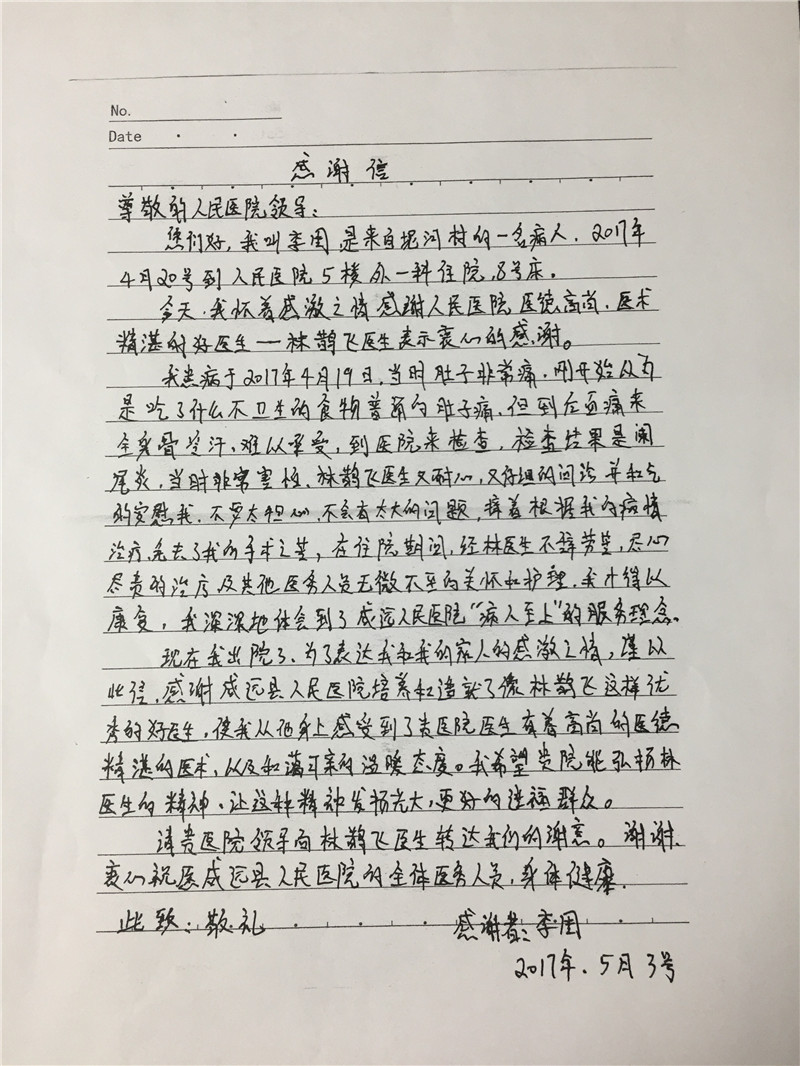 No.
Date
感谢信
尊敬的人民医院领导：
您们好，我叫李国，是来自坭河村的一名病人，2017年
4月20号到人民医院5楼外一科住院，8号床。
今天，我怀着感激之情感谢人民医院医德高尚，医术
精湛的好医生——林鹊飞医生表示衷心的感谢。
我患病于2017年4月19日，当时肚子非常痛，刚开始以为
是吃了什么不卫生的食物普通的肚子痛，但到后面痛来
全身骨发汗，难以承受，到医院来检查，检查结果是阑
尾炎，当时非常害怕，林鹊飞医生又耐心，又仔细的问诊并和气
的安慰我，不要太担心，不会有太大的问题，接着根据我的病情
治疗，免去了我的手术之苦，在住院期间，经林医生不辞劳苦，尽心
尽责的治疗及其他医务人员无微不至的关怀和护理，我才得以
康复，我深深地体会到了威远人民医院“病人至上”的服务理念。
现在我出院了，为了表达我和我的家人的感激之情，谨以
此信，感谢威远县人民医院培养和造就了像林鹊飞这样优
秀的好医生，使我从他身上感受到了贵医院医生有着高尚的医德
精湛的医术，以及和蔼可亲的温暖态度。我希望贵院能弘扬林
医生的精神，让这种精神发扬光大，更好的造福群众。
请贵医院领导向林鹊飞医生转达我们的谢意。谢谢，
衷心祝愿威远县人民医院的全体医务人员，身体健康，
此致：敬礼
感谢者：李国
2017年.5月3号